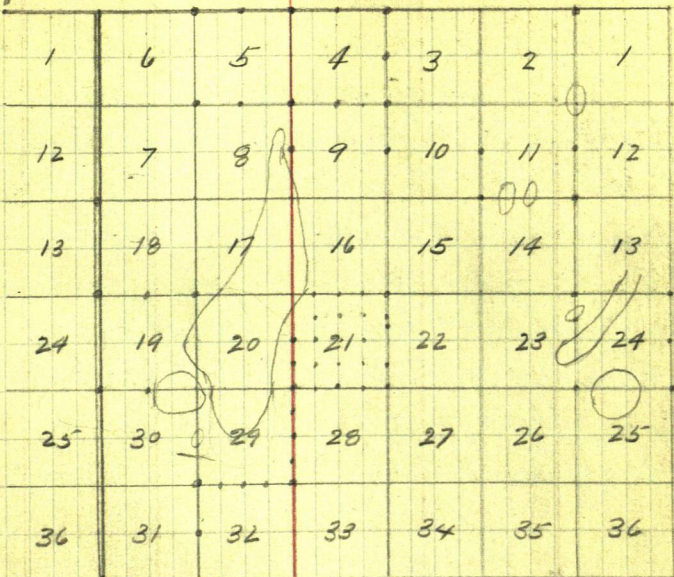 1 6 5 4 3 2 1
12 7 8 9 10 11 12
13 18 17 16 15 14 13
24 19 20 21 22 23 24
25 30 29 28 27 26 25
36 31 32 33 34 35 36